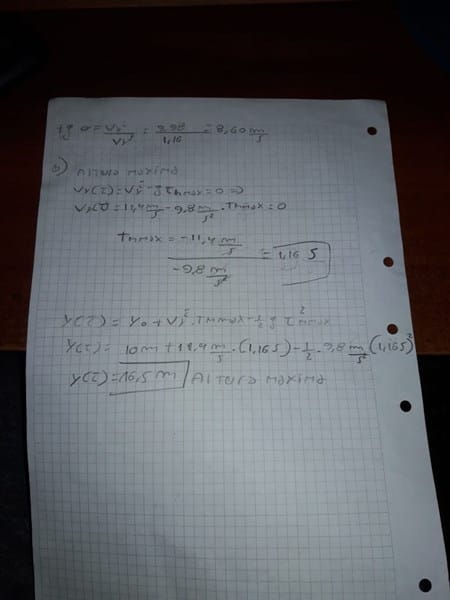 tg α = Vy / Vx = 9,98 / 1,16 = 8,60 m/s
Altura maxima
Vy(t) = Vi - g thmax = 0 ⇒
Vy(t) = 11,4 m/s - 9,8 m/s² · Thmax = 0
Thmax = -11,4 m/s / -9,8 m/s² = 1,16 s
y(t) = Yo + Vi · Thmax - 1/2 g t²hmax
y(t) = 10m + 11,4 m/s · (1,16s) - 1/2 · 9,8 m/s² (1,16s)²
y(t) = 16,5 m Altura maxima